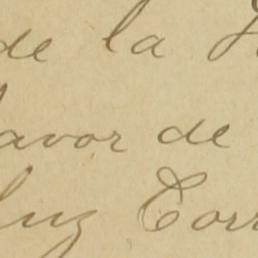 de la
favor de
Luz Corr